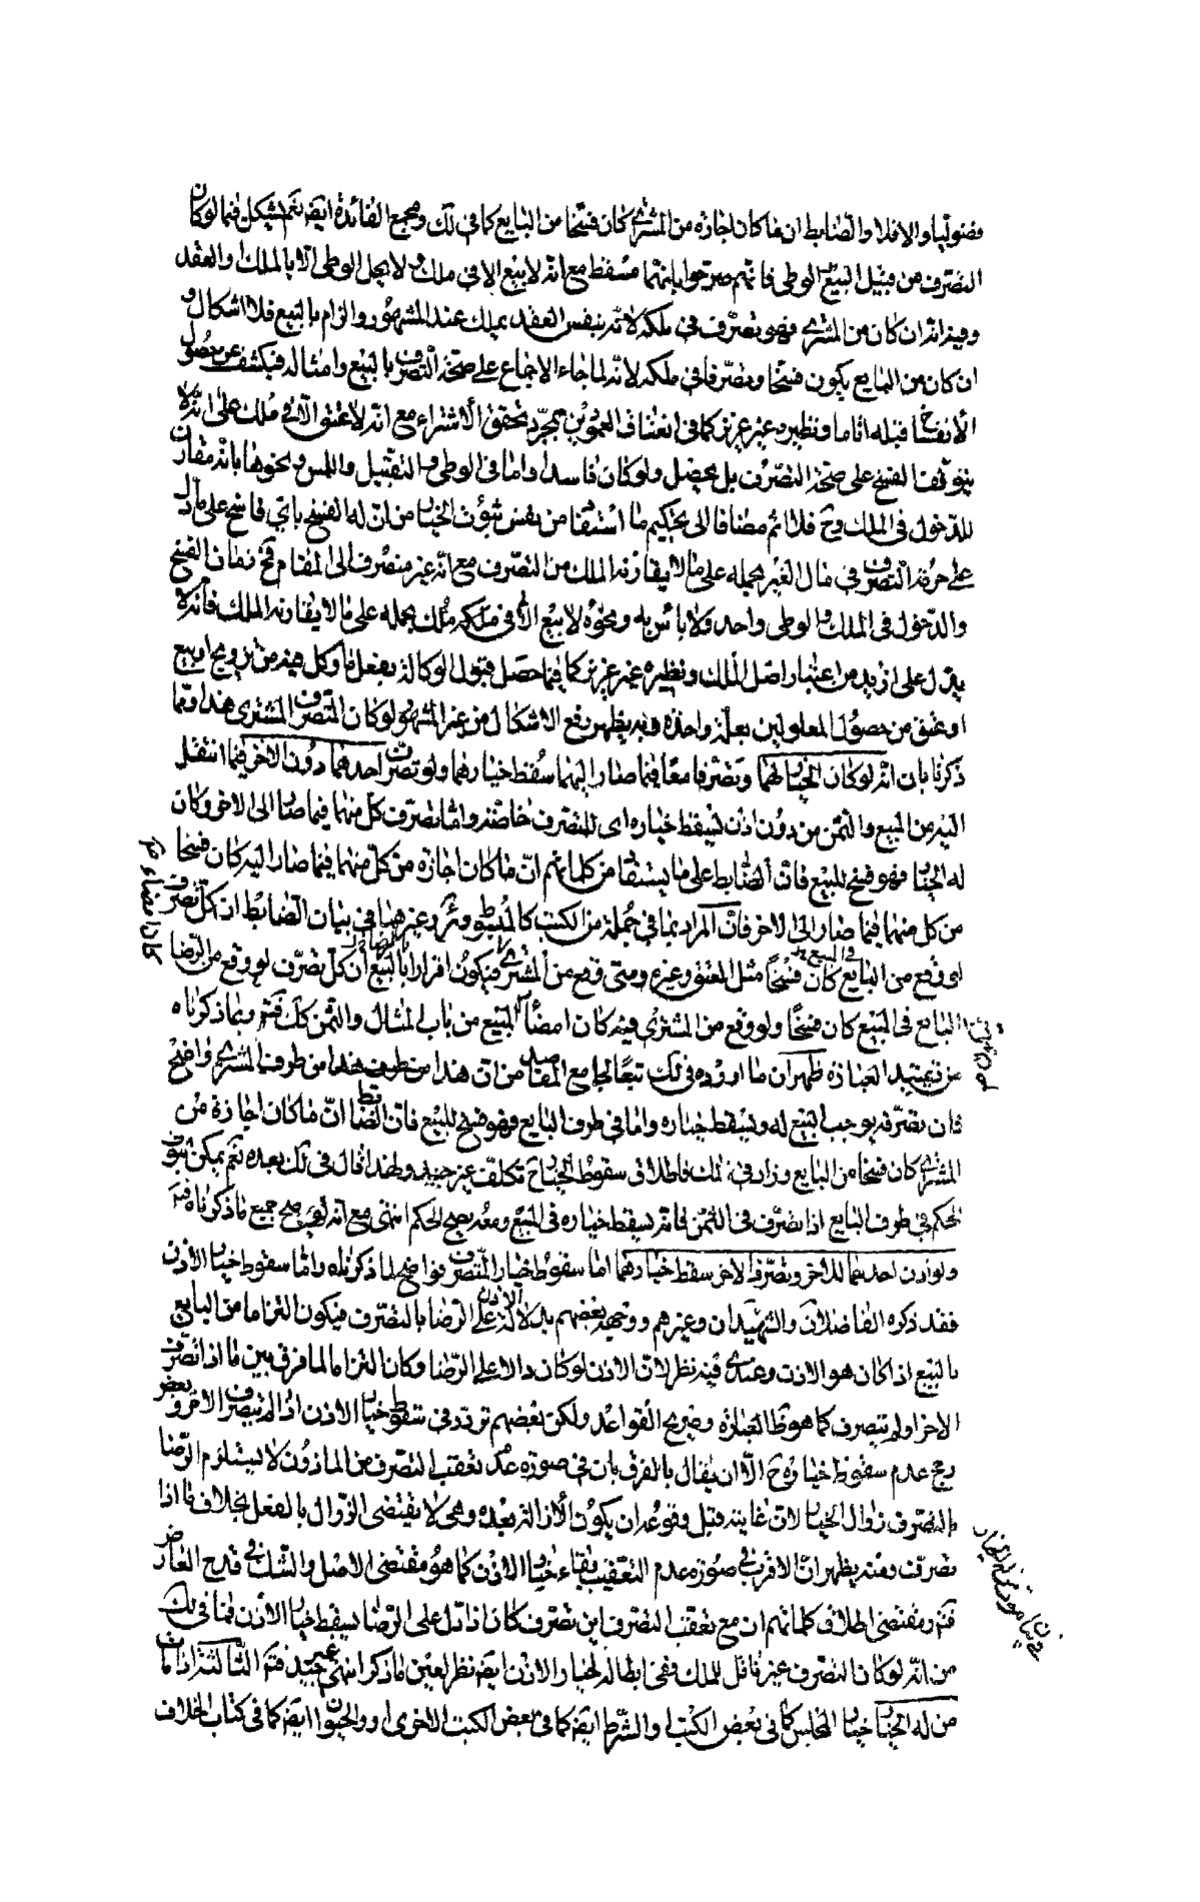 فضوليا والا فلا والضابط ان ما كان اجازة من المشتري كان فسخا من البايع كما في لك ومجمع الفائدة ايضا نعم يشكل فيما لو كان
التصرف من قبيل البيع والوطى فانهم صرحوا بانهما مسقط مع انه لا بيع الا في ملك ولا يحل الوطى الا بالملك او العقد
وفيه انه ان كان من المشتري فهو تصرف في ملكه لانه بنفس العقد يملك عند المشهور والزام بالبيع فلا اشكال و
ان كان من البايع يكون فسخا وتصرفا في ملكه لانه لما جاء الاجماع على صحة التصرف بالبيع وامثاله فيكشف عن حصول
الانفساخ قبله اناما ونظيره غير عزيز كما في انعتاق العمودين بمجرد تحقق الاشتراء مع انه لا عتق الا في ملك على انه لا
يتوقف الفسخ على صحة التصرف بل يحصل ولو كان فاسدا واما في الوطى والتقبيل واللمس ونحوها بانه مقارن
للدخول في الملك وح فلا اثم مضافا الى تحكيم ما استفيد من نفس ثبوت الخيار من ان له الفسخ باي فاسخ على ما دل
على حرمة التصرف في مال الغير بحمله على ما لا يقارنه الملك من التصرف مع انه غير منصرف الى المقام فح زمان الفسخ
والدخول في الملك والوطى واحد ولا باس به ونحوه لا بيع الا في ملكه ملك بحمله على ما لا يقارنه الملك فانه لا
يدل على ازيد من اعتبار اصل الملك ونظيره غير عزيز كما فيما حصل قبول الوكالة بفعل ما وكل فيه من تزويج او بيع
او عتق من حصول المعلولين بعلة واحدة وبه يظهر رفع الاشكال من غير المشهور لو كان التصرف من المشتري هذا ومما
ذكرنا بان انه لو كان الخيار لهما وتصرفا معا فيما صار اليهما سقط خيارهما ولو تصرف احدهما دون الاخر فيما انتقل
اليه من المبيع والثمن من دون اذن يسقط خياره اى للمتصرف خاصة واما تصرف كل منهما فيما صار الى الاخر وكان
له الخيار فهو فسخ للبيع فان الضابط على ما يستفاد من كلماتهم ان ما كان اجازة من كل منهما فيما صار اليه كان فسخا
من كل منهما فيما صار الى الاخر فان المراد بما في جملة من الكتب كالمبسوط وئر وغيرهما في بيان الضابط ان كل تصرف
لو وقع من البايع في المبيع كان فسخا مثل العتق وغيره ومتى وقع من المشتري فيكون اقرارا بالرضا بالبيع ان كل تصرف لو وقع من
البايع في المبيع كان فسخا ولو وقع من المشتري فيه كان امضاء البيع من باب المثال والثمن كك فتم وبما ذكرناه
من تقييد العبارة ظهر ان ما اورده في لك تبعا لجامع المقاصد من ان هذا من طرف المشتري واضح
فان تصرفه يوجب البيع له ويسقط خياره واما في طرف البايع فهو فسخ للبيع فان الضابط ان ما كان اجازة من
المشتري كان فسخا من البايع وزاد في لك فاطلاق سقوط الخيار ح تكلف غير جيد ولهذا قال في لك بعده نعم يمكن ثبوت
الحكم في طرف البايع اذا تصرف في الثمن فانه يسقط خياره في المبيع ومعه يصح الحكم انتهى مع انه لم يصح جميع ما ذكرناه فتم
ولو اذن احدهما للاخر وتصرف الاخر سقط خيارهما اما سقوط خيار المتصرف فواضح لما ذكرناه واما سقوط خيار الاذن
فقد ذكره الفاضلان والشهيدان وغيرهم ووجهه بعضهم بدلالة الاذن على الرضا بالتصرف فيكون التزاما من البايع
بالبيع اذا كان هو الاذن وعندي فيه نظر لان الاذن لو كان دالا على الرضا وكان التزاما لما فرق بين ما اذا تصرف
الاخر او لم يتصرف كما هو ظ العبارة وصريح القواعد ولكن بعضهم تردد في سقوط خيار الاذن اذا لم يتصرف الاخر وبعض
رجح عدم سقوط خياره ح الا ان يقال بالفرق بان في صورة عدم تعقب التصرف من الماذون لا يستلزم الرضا
بالتصرف زوال الخيار لان غايته قبل وقوعه ان يكون الازالة بعده وهى لا يقتضى الزوال بالفعل بخلاف ما اذا
تصرفت ومنه يظهر ان الاقرب في صورة عدم التعقيب بقاء خيار الاذن كما هو مقتضى الاصل والشك في قدح العارض
فتم ومقتضى اطلاق كلماتهم ان مع تعقب التصرف اين تصرف كان اذا دل على الرضا يسقط خيار الاذن فما في لك
من انه لو كان التصرف غير ناقل للملك وفى ابطاله لخيار الاذن ايضا نظر لعين ما ذكر انتهى غير جيد فتم الثالثة اذا مات
من له الخيار خيار المجلس كما في بعض الكتب او الشرط ايضا كما في بعض الكتب الاخرى او والحيوان ايضا كما في كتاب الخلاف